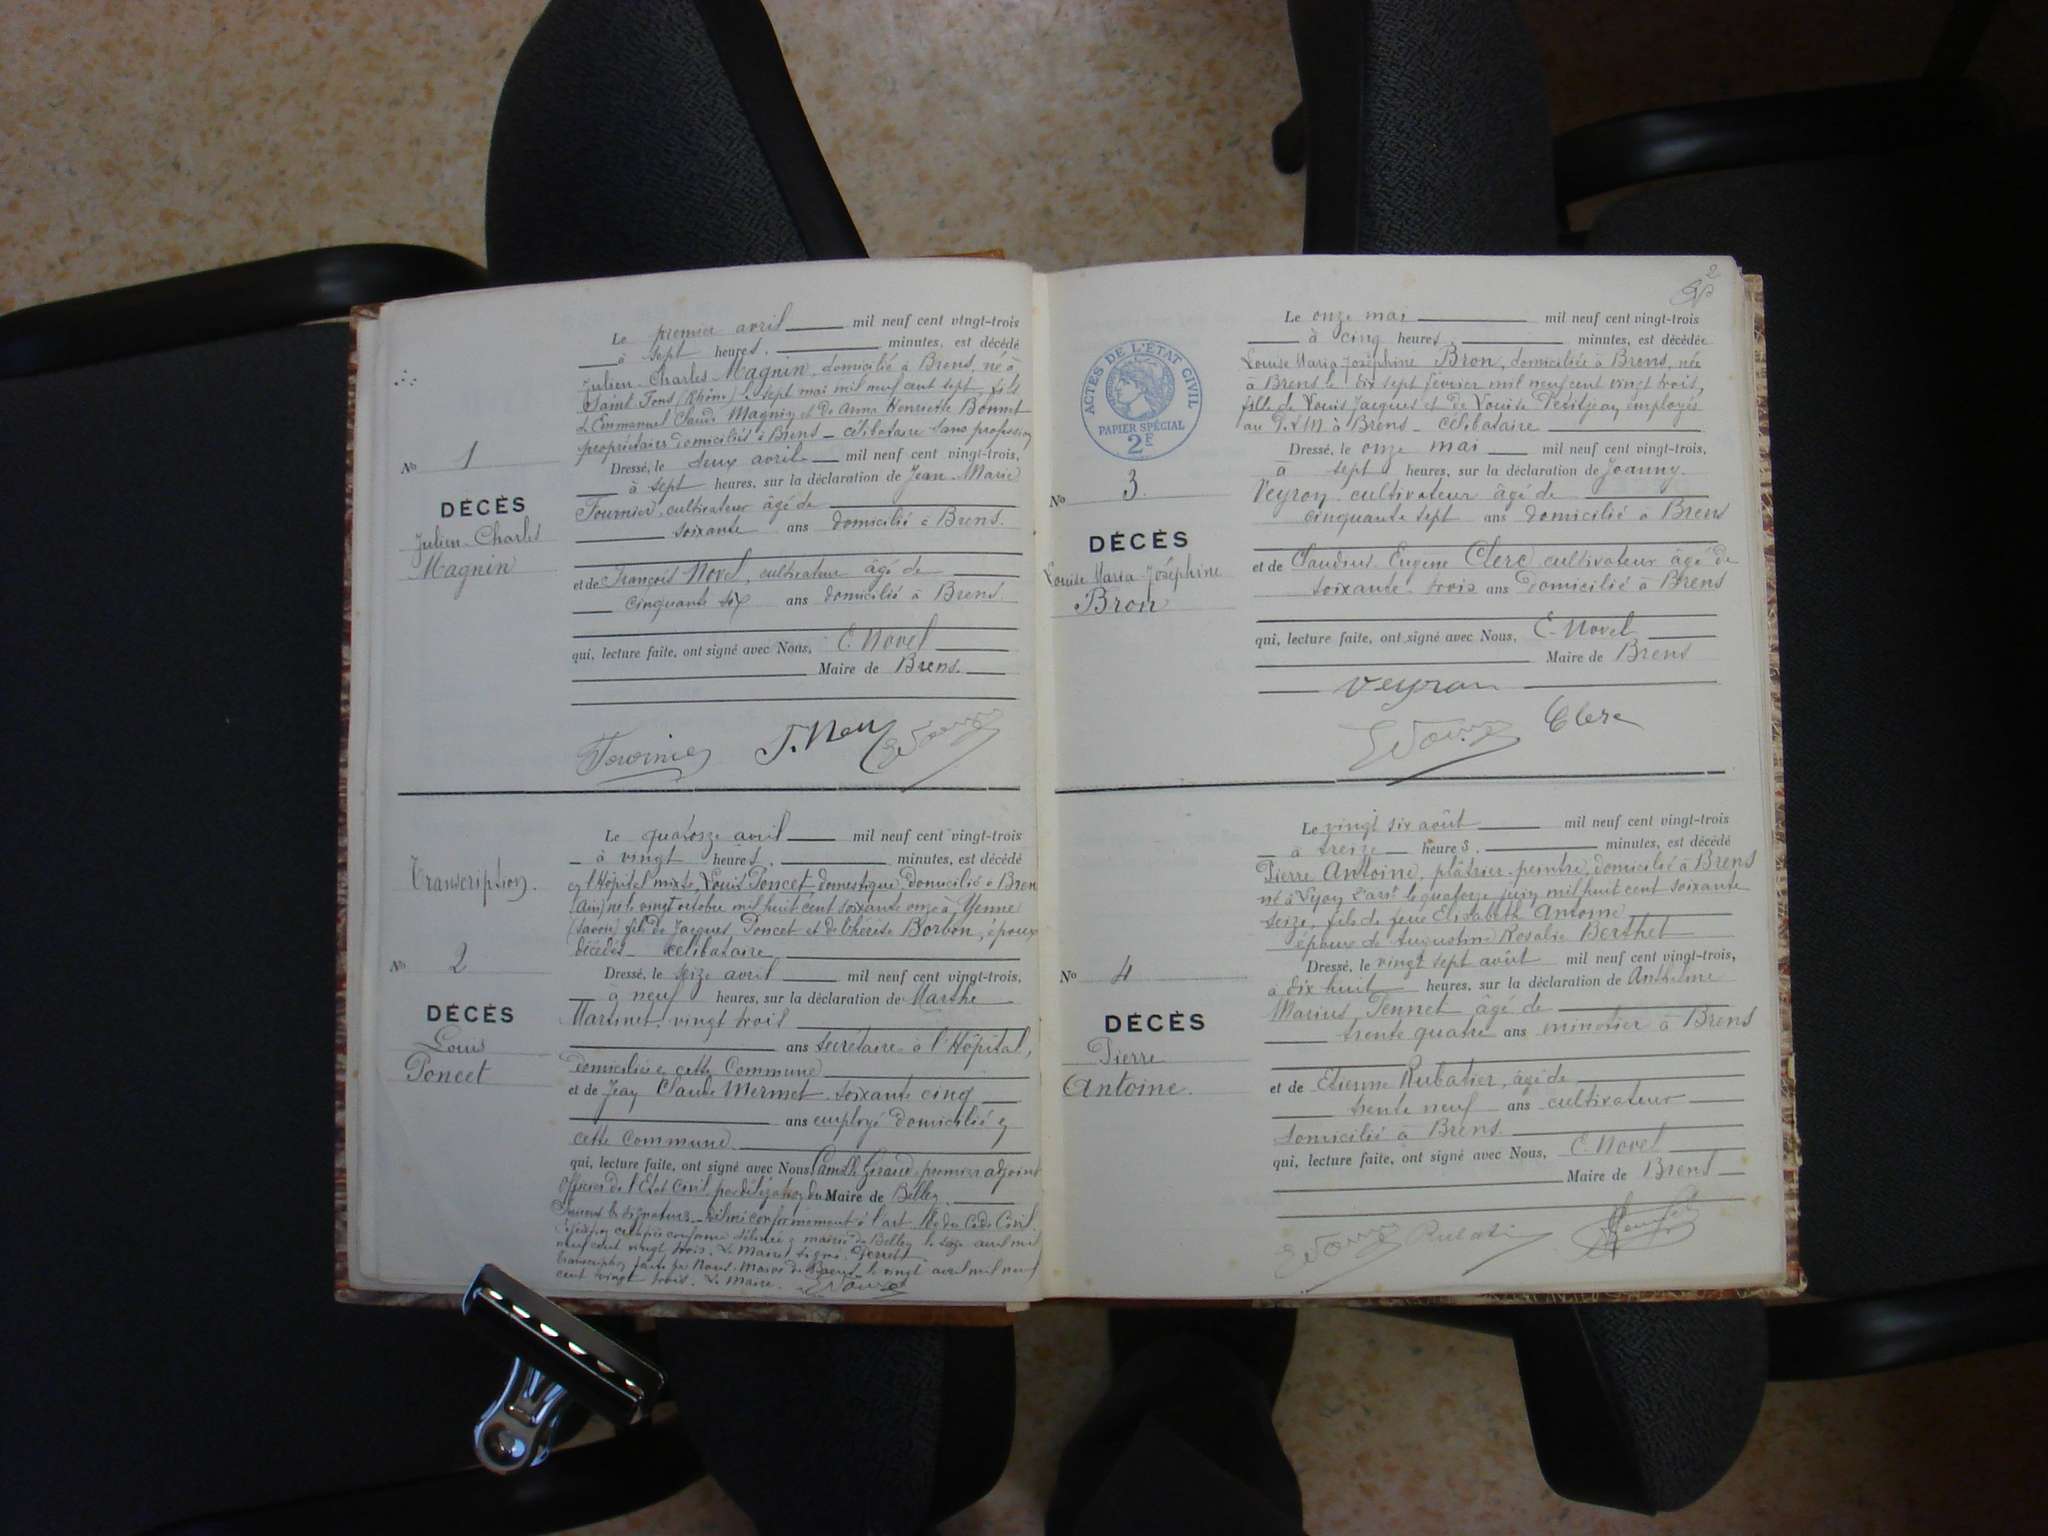 Le premier avril mil neuf cent vingt-trois
à sept heures, minutes, est décédé
Julien-Charles Magnin, domicilié à Brens, né à
Saint-Fons (Rhône) le sept mai mil neuf cent sept, fils
d'Emmanuel Claude Magnin et de Anna Henriette Bonnet
propriétaires domiciliés à Brens - célibataire sans profession
Dressé, le deux avril mil neuf cent vingt-trois,
à sept heures, sur la déclaration de Jean-Marie
Fournier, cultivateur âgé de
soixante ans domicilié à Brens.
No 1
DÉCÈS
Julien-Charles
Magnin
et de François Novel, cultivateur âgé de
cinquante six ans domicilié à Brens.
qui, lecture faite, ont signé avec Nous, E. Novel
Maire de Brens.
Fournier
Le quatorze avril mil neuf cent vingt-trois
à vingt heures, minutes, est décédé
en l'Hôpital mixte, Louis Poncet, domestique domicilié à Brens
(Ain) né le vingt octobre mil huit cent soixante onze à Yenne
(Savoie) fils de Jacques Poncet et de Thérèse Borbon, époux
décédés célibataire
Transcription.
No 2
DÉCÈS
Louis
Poncet
Dressé, le seize avril mil neuf cent vingt-trois,
à neuf heures, sur la déclaration de Marthe
Martinet vingt trois
ans secrétaire à l'Hôpital,
domiciliée en cette Commune
et de Jean Claude Mermet soixante cinq
ans employé domicilié en
cette Commune.
qui, lecture faite, ont signé avec Nous, Camille Giraud premier adjoint
Officier de l'Etat Civil par délégation du Maire de Belley.
Suivent les signatures - Délivré conformément à l'art. 80 du Code Civil
Expédition certifiée conforme délivrée en mairie de Belley le seize avril mil
neuf cent vingt trois. Le Maire signé
Transcription faite par Nous, Maire de Brens, le vingt avril mil neuf
cent vingt trois. Le Maire.
2
Le onze mai mil neuf cent vingt-trois
à cinq heures, minutes, est décédée
Louise Maria Joséphine Bron, domiciliée à Brens, née
à Brens le dix sept février mil neuf cent vingt trois,
fille de Louis Jacques et de Louise Petitjean employés
au P.L.M. à Brens - célibataire
ACTES DE L'ÉTAT CIVIL
PAPIER SPÉCIAL
2F
Dressé, le onze mai mil neuf cent vingt-trois,
à sept heures, sur la déclaration de Joanny
Veyron cultivateur âgé de
cinquante sept ans domicilié à Brens
No 3.
DÉCÈS
Louise Maria Joséphine
Bron
et de Claudius Eugène Clerc cultivateur âgé de
soixante trois ans domicilié à Brens
qui, lecture faite, ont signé avec Nous, E. Novel
Maire de Brens
Veyron
Clerc
Le vingt six août mil neuf cent vingt-trois
à treize heures, minutes, est décédé
Pierre Antoine, plâtrier-peintre, domicilié à Brens
né à Lyon le quatorze juin mil huit cent soixante
seize, fils de feue Elisabeth Antoine
époux de Augustine Rosalie Berthet
Dressé, le vingt sept août mil neuf cent vingt-trois,
à dix huit heures, sur la déclaration de Anthelme
Marius Tennet âgé de
trente quatre ans minotier à Brens
No 4
DÉCÈS
Pierre
Antoine.
et de Etienne Rubatier, âgé de
trente neuf ans cultivateur
domicilié à Brens.
qui, lecture faite, ont signé avec Nous, E. Novel
Maire de Brens